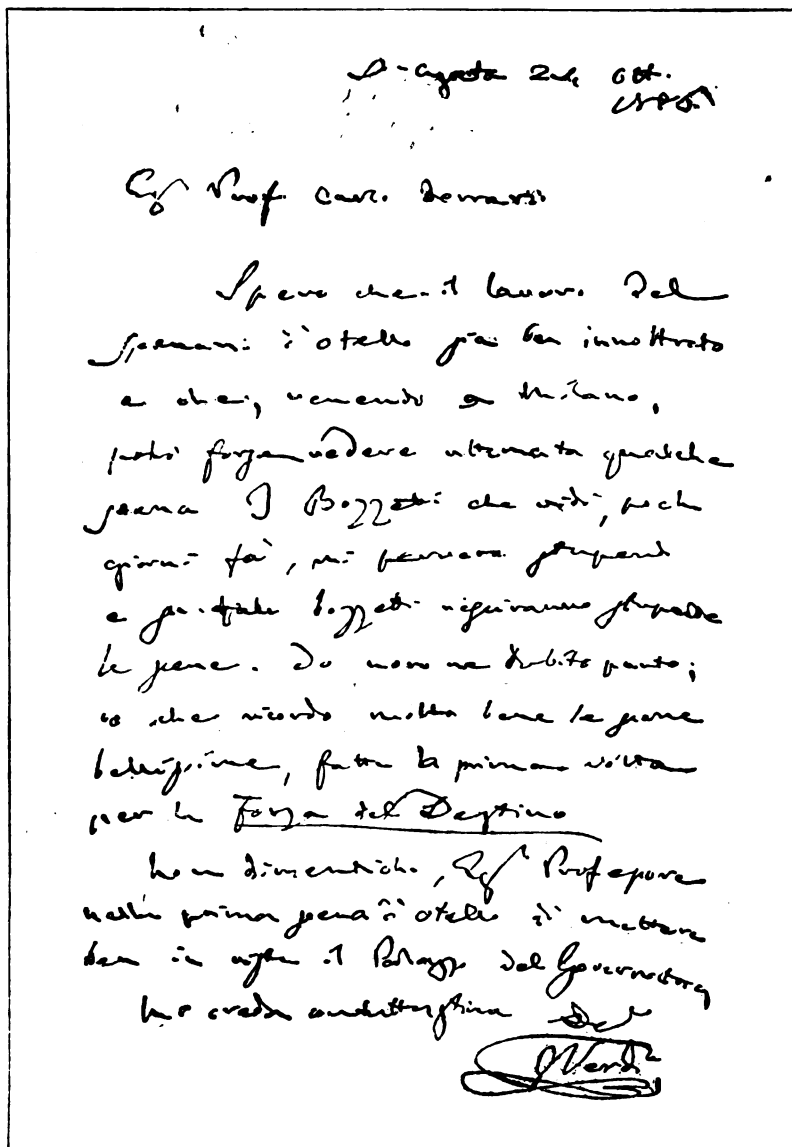 S. Agata 24 Ott.
Eg Prof. Carlo Ferrario
Spero che il lavoro del
scenario d'otello sia ben innoltrato
e che, venendo a Milano,
potrò forse vedere ultimata qualche
scena I Bozzetti che vidi, pochi
giorni fà, mi parvero stupendi
e su tali bozzetti usciranno stupende
le scene. Io non ne dubito punto;
io che ricordo molto bene le scene
bellissime, fatte la prima volta
per la Forza del Destino
Non dimentichi, Eg Professore
nella prima scena d'otello di mettere
ben in vista il Palazzo del Governatore
Mi creda
G Verdi